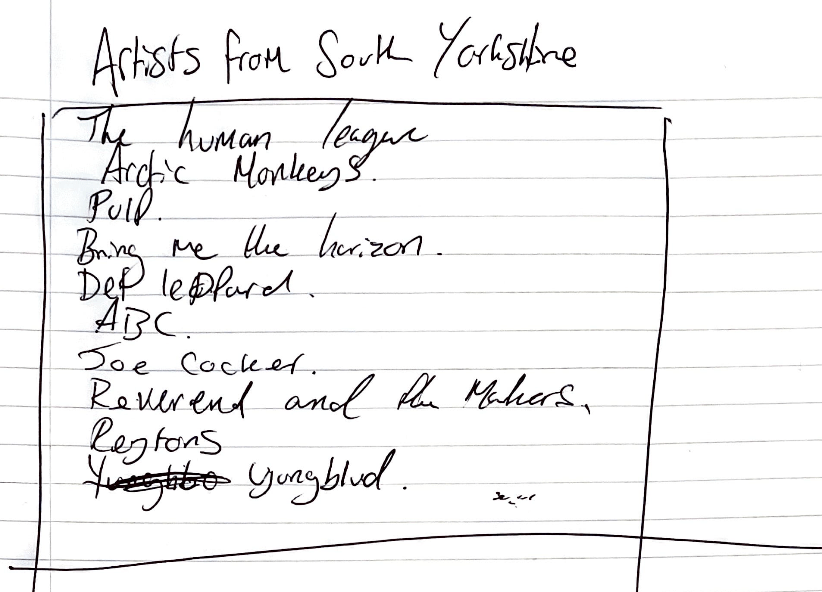 Artists from South Yorkshire
The human league
Arctic Monkeys.
Pulp.
Bring me the horizon.
Def leopard.
ABC.
Joe Cocker.
Reverend and the Makers.
Reytons
yungblud.